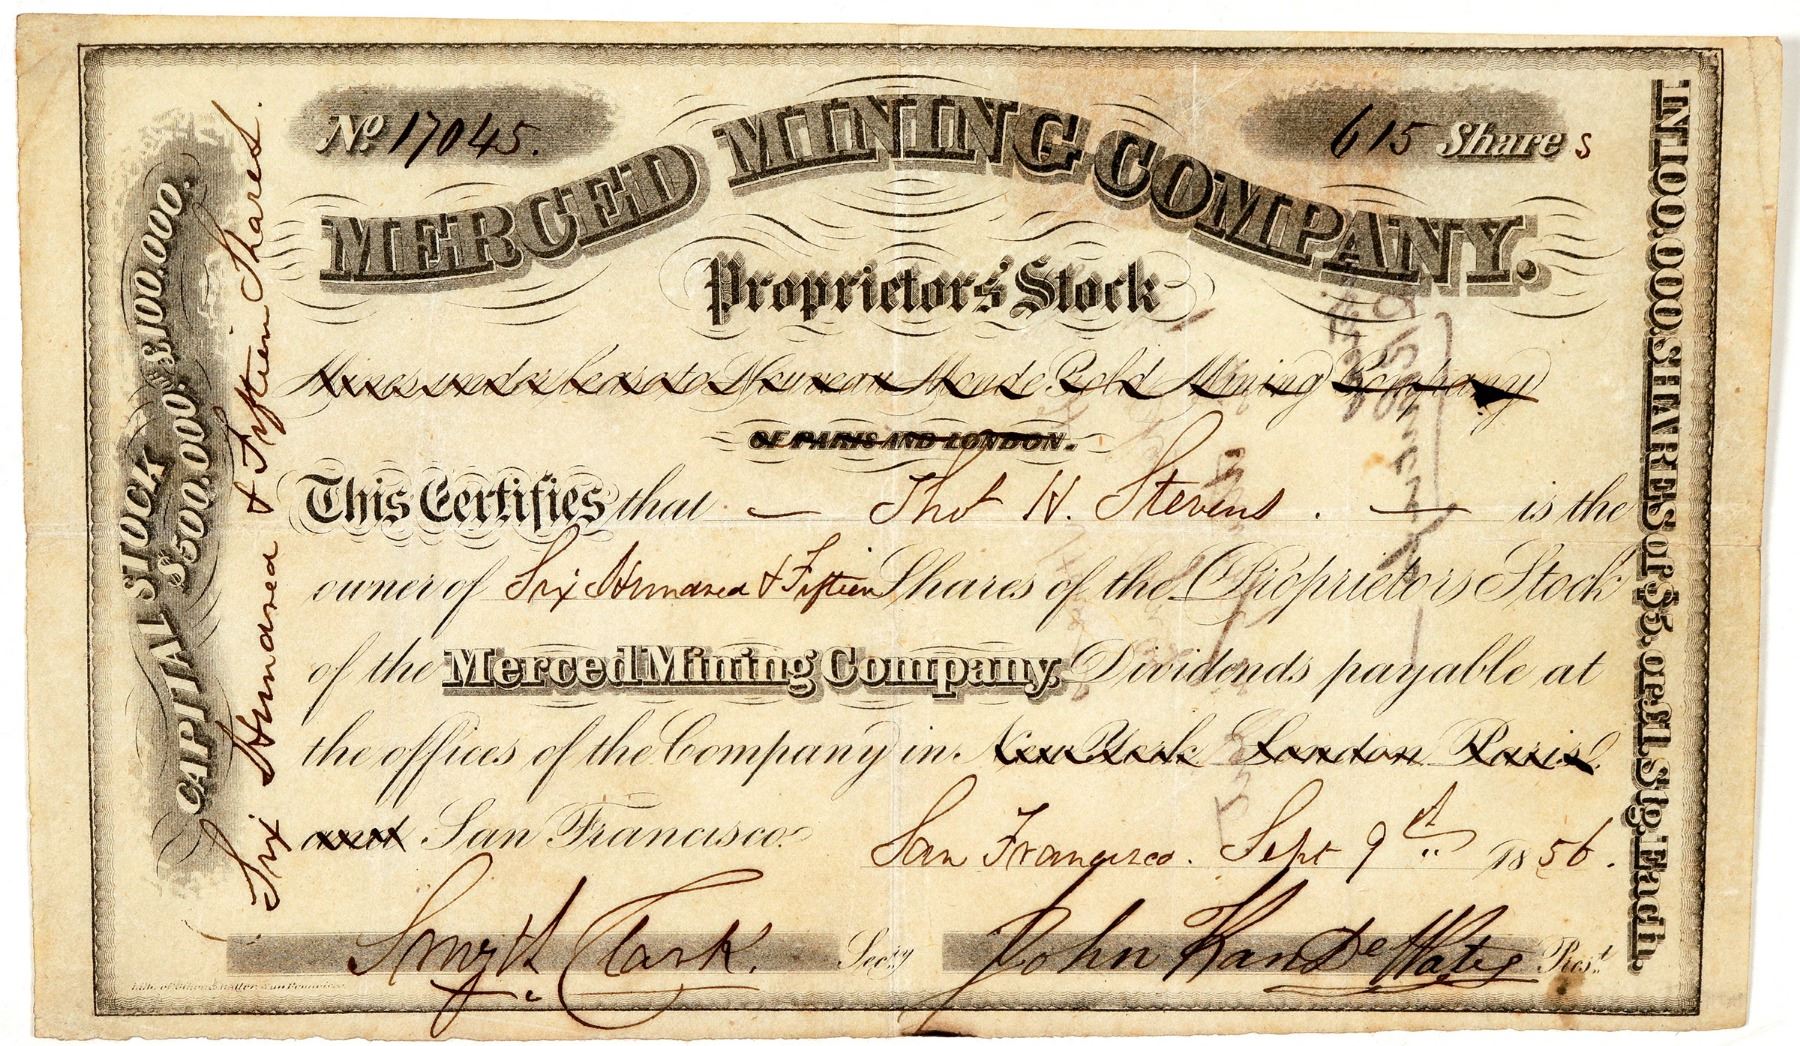 No. 17045.
615 Shares
MERCED MINING COMPANY.
Proprietors' Stock
Mines under lease to Nouveau Monde Gold Mining Company
OF PARIS AND LONDON.
This Certifies that Thos H. Stevens. is the
owner of Six Hundred & Fifteen Shares of the Proprietors Stock
of the Merced Mining Company, Dividends payable at
the offices of the Company in New York London Paris
and San Francisco.
San Francisco. Sept 9th 1856.
Smyth Clark. Secy
John Prest
CAPITAL STOCK
$500.000. £100.000.
Six Hundred & Fifteen Shares.
IN 100.000 SHARES OF $5. or £1. Stg. Each.